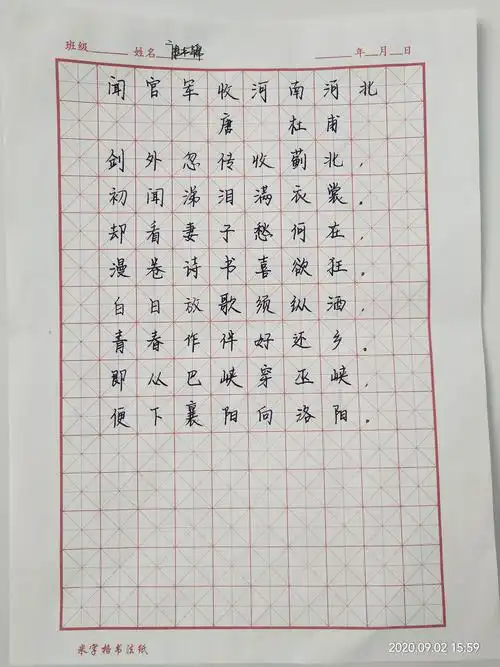 班级 姓名 年 月 日
闻官军收河南河北
唐 杜甫
剑外忽传收蓟北，
初闻涕泪满衣裳。
却看妻子愁何在，
漫卷诗书喜欲狂。
白日放歌须纵酒，
青春作伴好还乡。
即从巴峡穿巫峡，
便下襄阳向洛阳。
米字格书法纸
2020.09.02 15:59